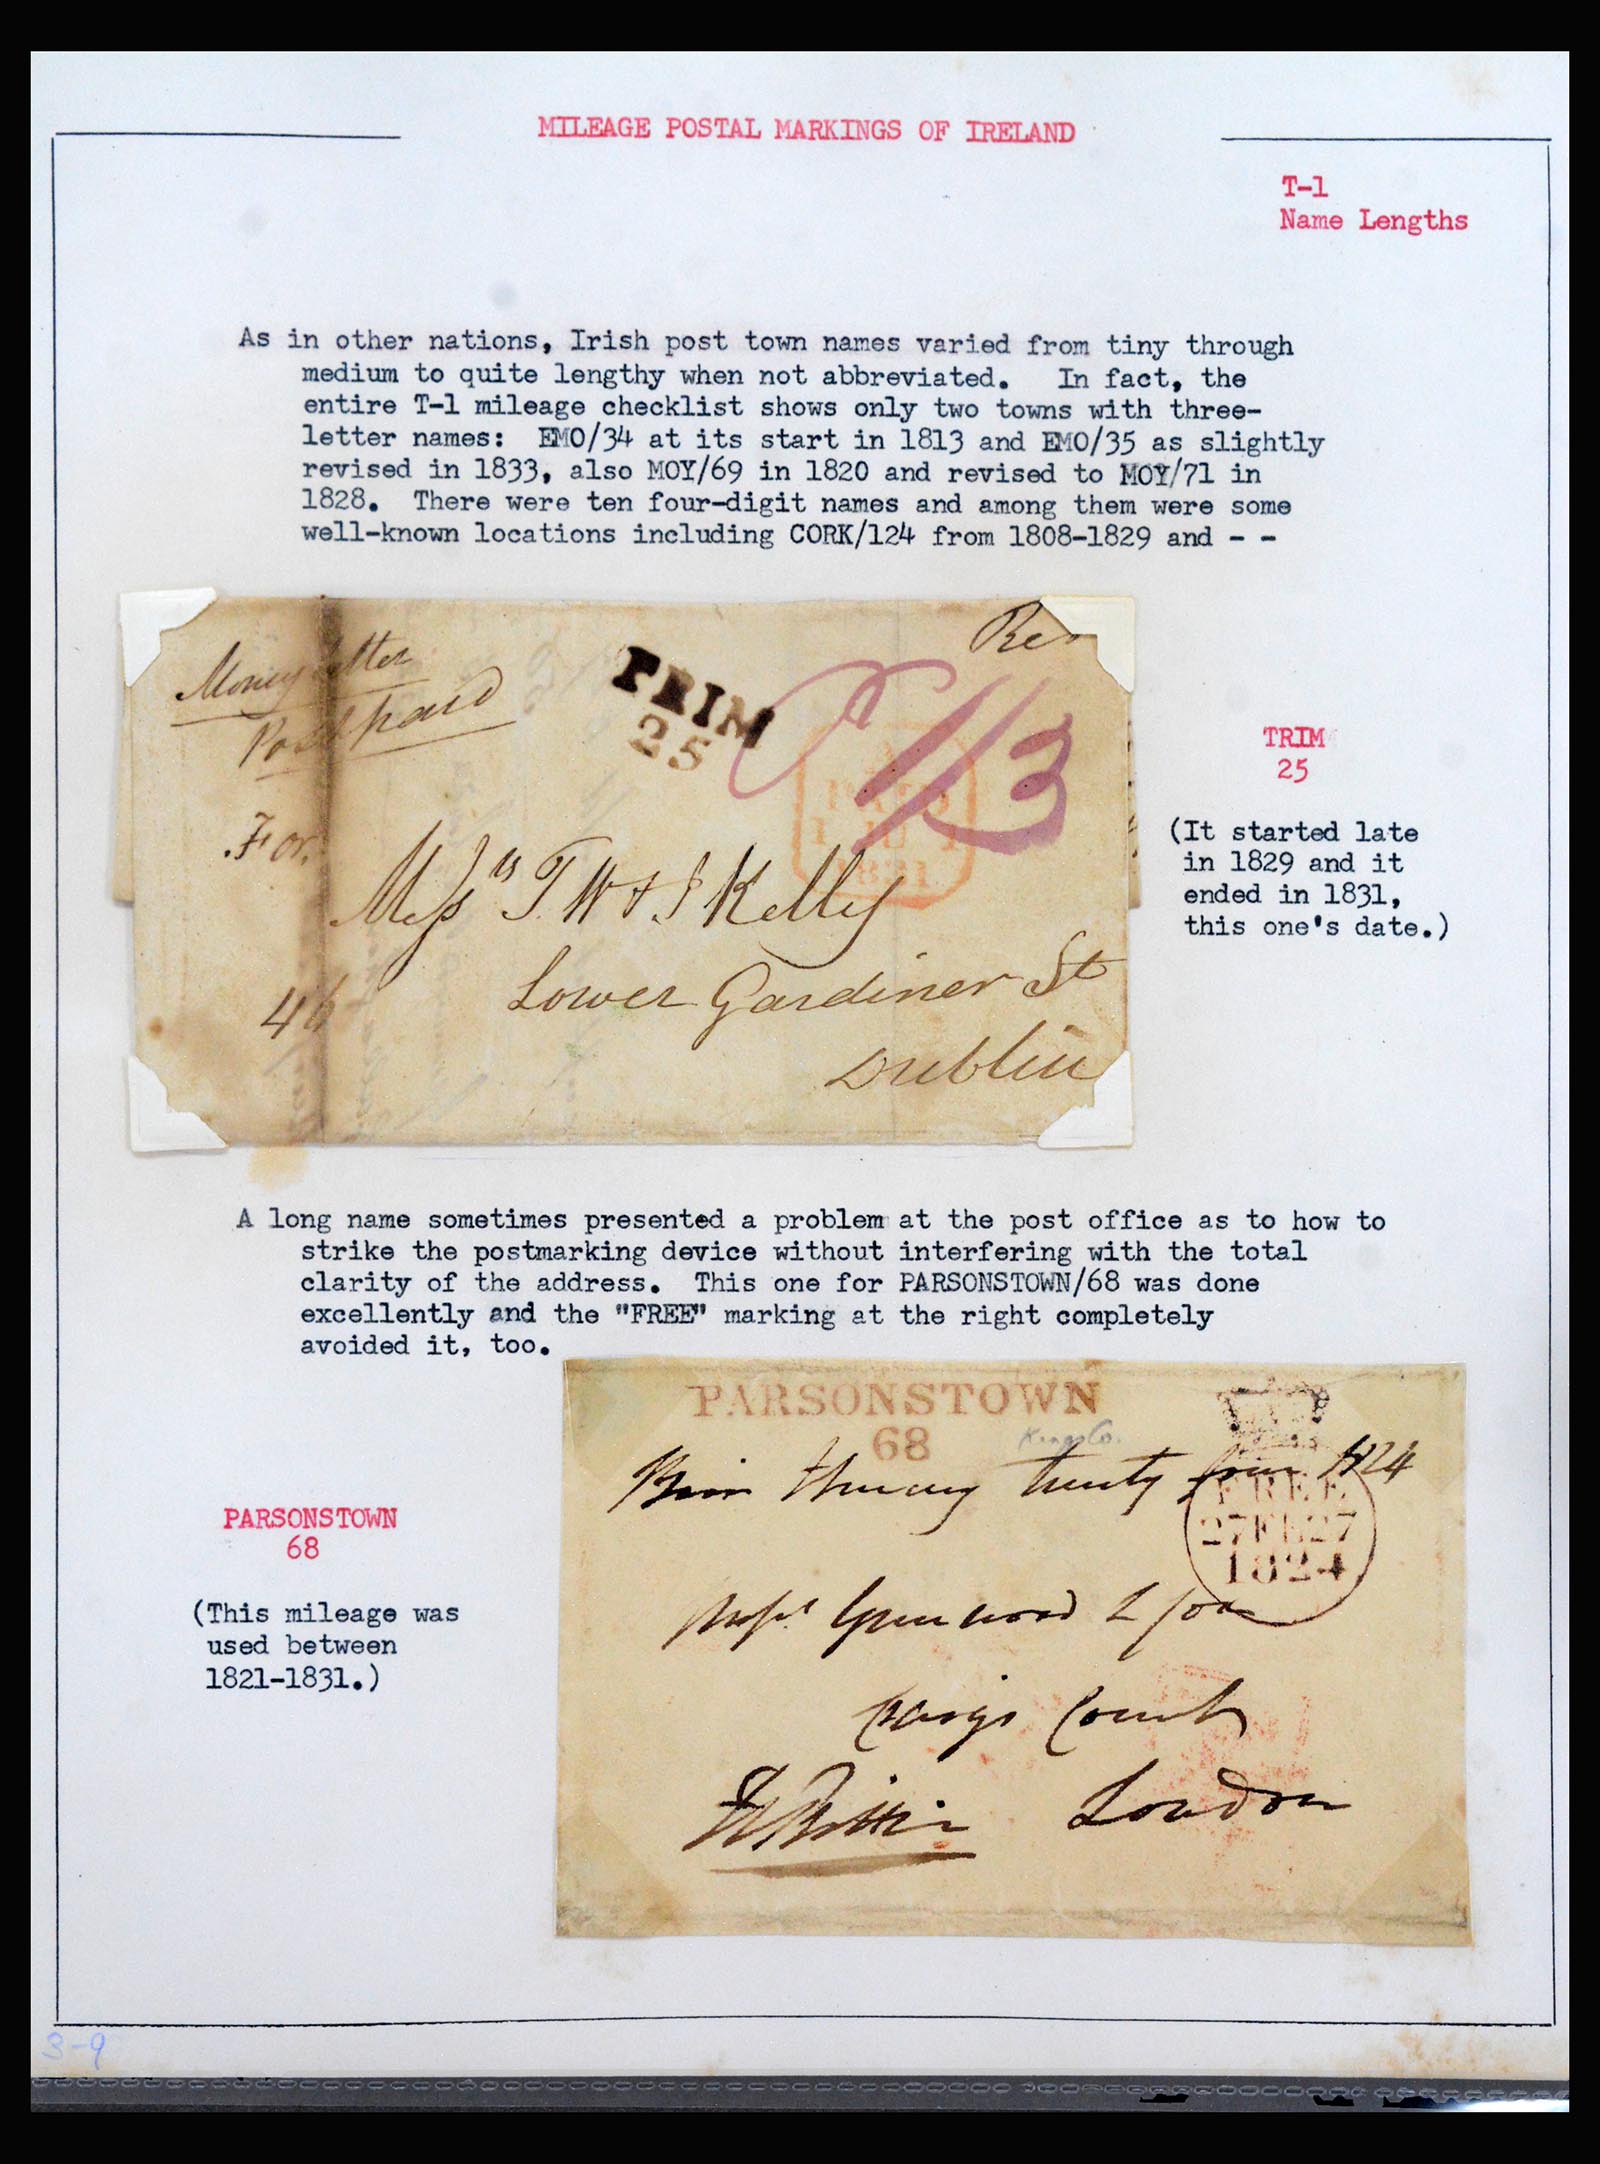 MILEAGE POSTAL MARKINGS OF IRELAND
T-1
Name Lengths
As in other nations, Irish post town names varied from tiny through
medium to quite lengthy when not abbreviated. In fact, the
entire T-1 mileage checklist shows only two towns with three-
letter names: EMO/34 at its start in 1813 and EMO/35 as slightly
revised in 1833, also MOY/69 in 1820 and revised to MOY/71 in
1828. There were ten four-digit names and among them were some
well-known locations including CORK/124 from 1808-1829 and - -
Money Letter
Post paid
TRIM
25
1/3
PAID
1831
For
Messrs T W & J Kelly
Lower Gardiner St
Dublin
TRIM
25
(It started late
in 1829 and it
ended in 1831,
this one's date.)
A long name sometimes presented a problem at the post office as to how to
strike the postmarking device without interfering with the total
clarity of the address. This one for PARSONSTOWN/68 was done
excellently and the "FREE" marking at the right completely
avoided it, too.
PARSONSTOWN
68
Kings Co.
Birr twenty four 1824
FREE
27 FE 27
1824
Greenwood
Craigs Court
London
PARSONSTOWN
68
(This mileage was
used between
1821-1831.)
3-9